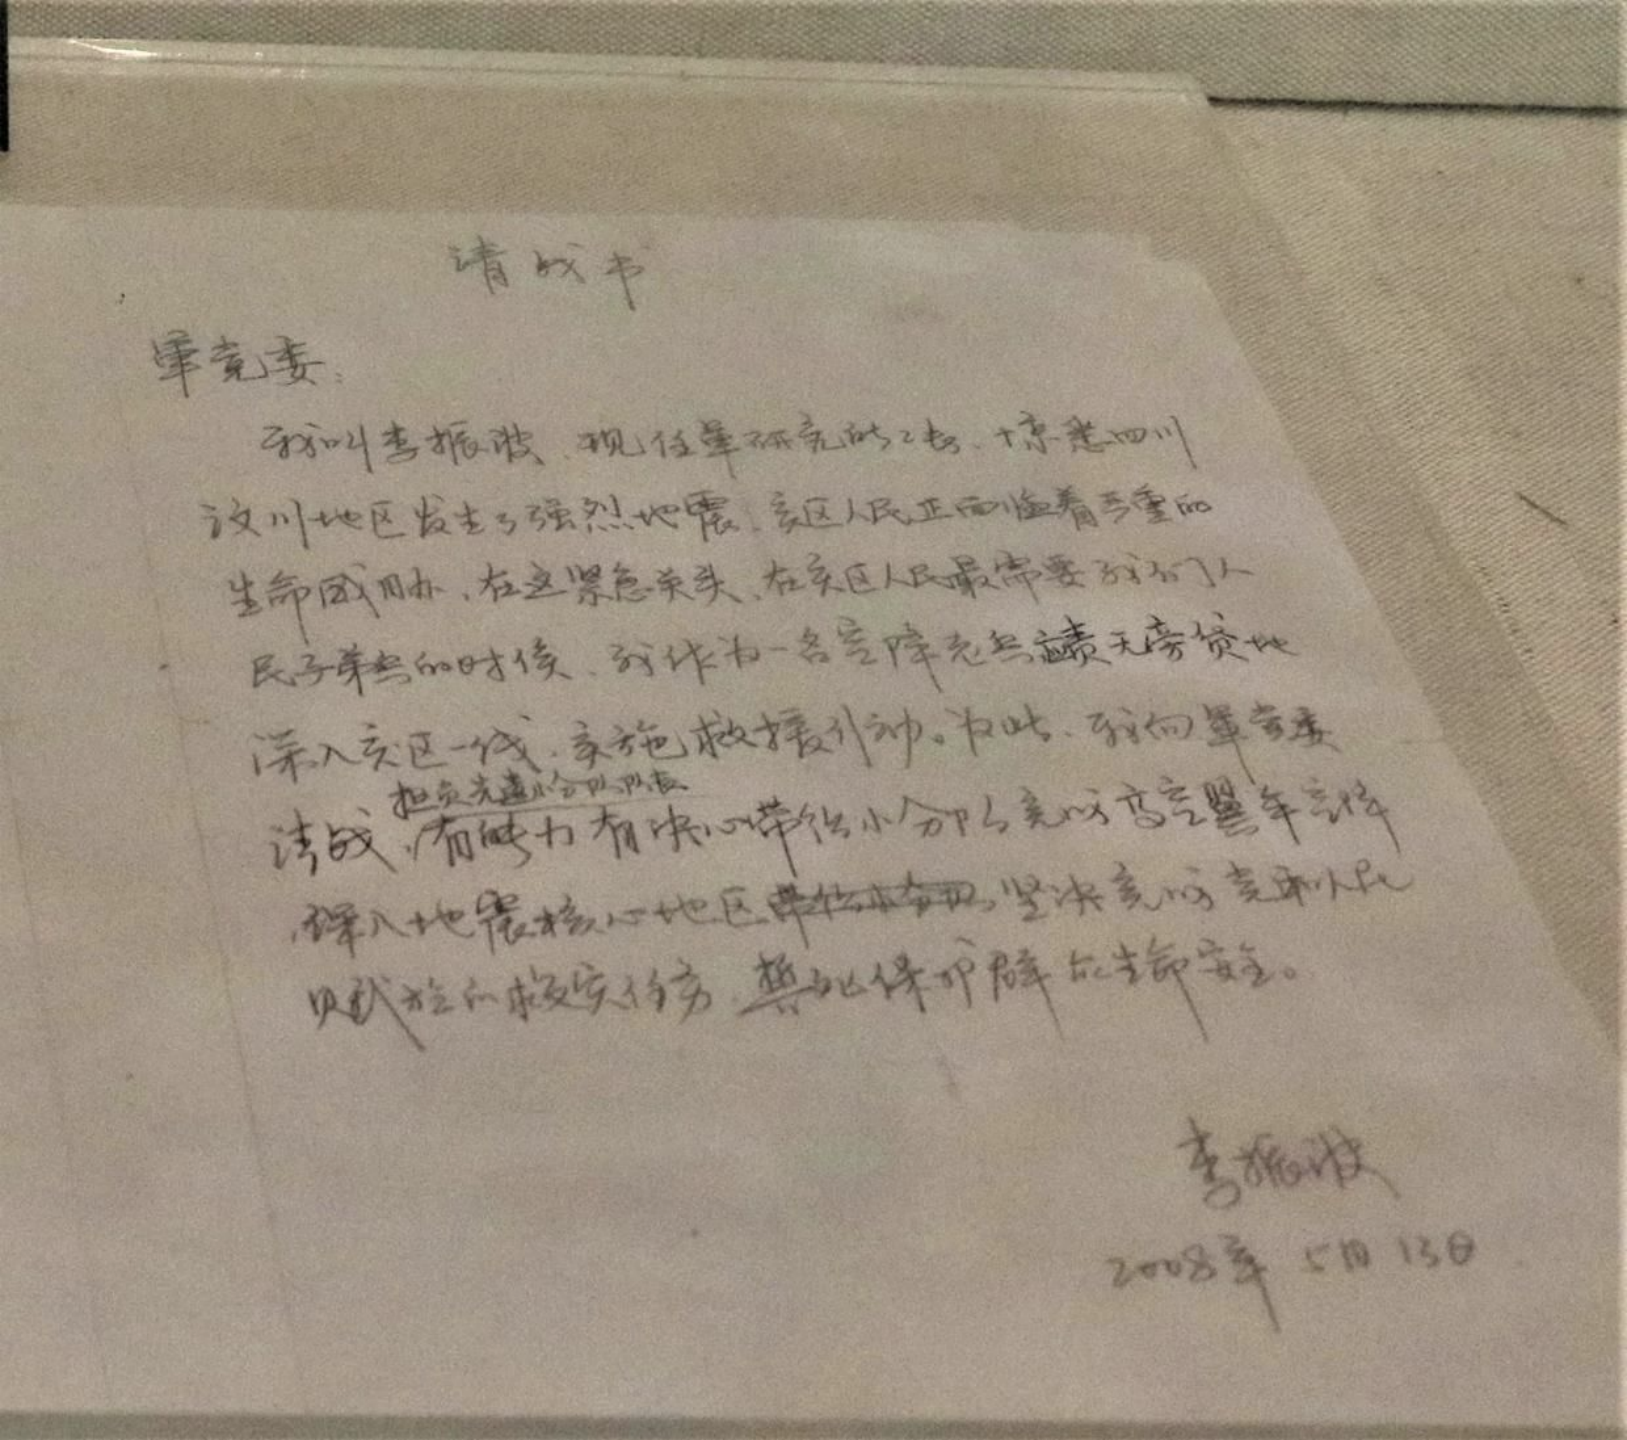 请战书
军党委：
我叫李振波、现任军研究所所长、惊悉四川
汶川地区发生了强烈地震、灾区人民正面临着严重的
生命威胁、在这紧急关头、在灾区人民最需要我们人
民子弟兵的时候、我作为一名空降兵责无旁贷地
深入灾区一线、实施救援行动。为此、我向军党委
担负先遣小分队队长
请战、有能力有决心带领小分队完成高空翼伞空降
深入地震核心地区坚决完成党和人民
赋予的救灾任务、誓死保护群众生命安全。
李振波
2008年 5月 13日